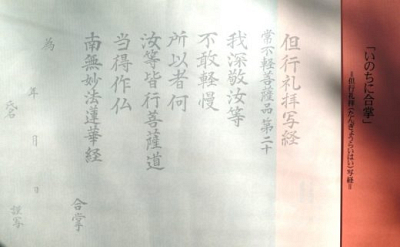 「いのちに合掌」
＝但行礼拝（たんぎょうらいはい）写経＝
但行礼拝写経
常不軽菩薩品 第二十
我深敬汝等
不敢軽慢
所以者何
汝等皆行菩薩道
当得作仏
南無妙法蓮華経
合掌
為
年 月 日
氏名
謹写